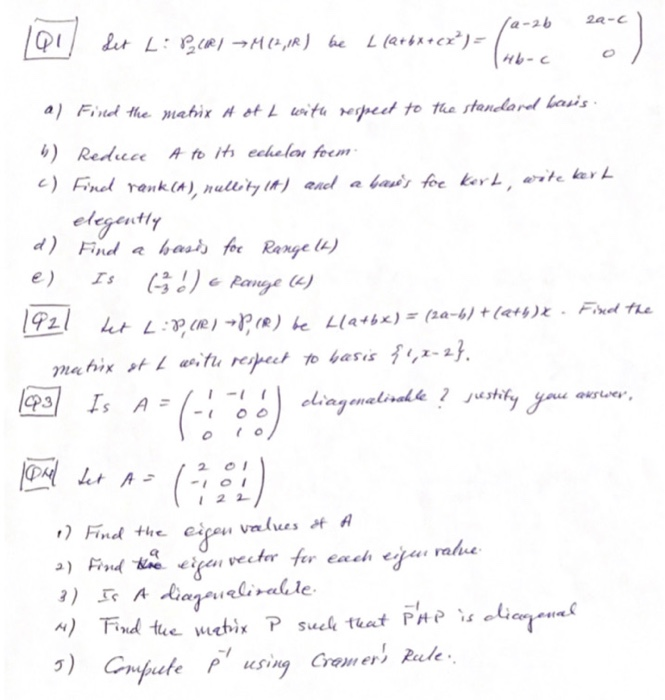 Q1 Let L: P₂(ℝ) → M(2,ℝ) be L(a+bx+cx²) = (a-2b 2a-c
4b-c 0)
a) Find the matrix A of L with respect to the standard basis.
b) Reduce A to its echelon form.
c) Find rank(A), nullity(A) and a basis for KerL, write ker L
elegently
d) Find a basis for Range(L)
e) Is (2 1
-3 0) ∈ Range(L)
Q2 Let L: P₁(ℝ) → P₁(ℝ) be L(a+bx) = (2a-b)+(a+b)x. Find the
matrix of L with respect to basis {1, x-2}.
Q3 Is A = (1 -1 1
-1 0 0
0 1 0) diagonalizable? justify your answer.
Q4 Let A = (2 0 1
-1 0 1
1 2 2)
1) Find the eigen values of A
2) Find a eigen vector for each eigen value.
3) Is A diagonalizable.
4) Find the matrix P such that P⁻¹AP is diagonal
5) Compute P⁻¹ using Cramer's Rule.